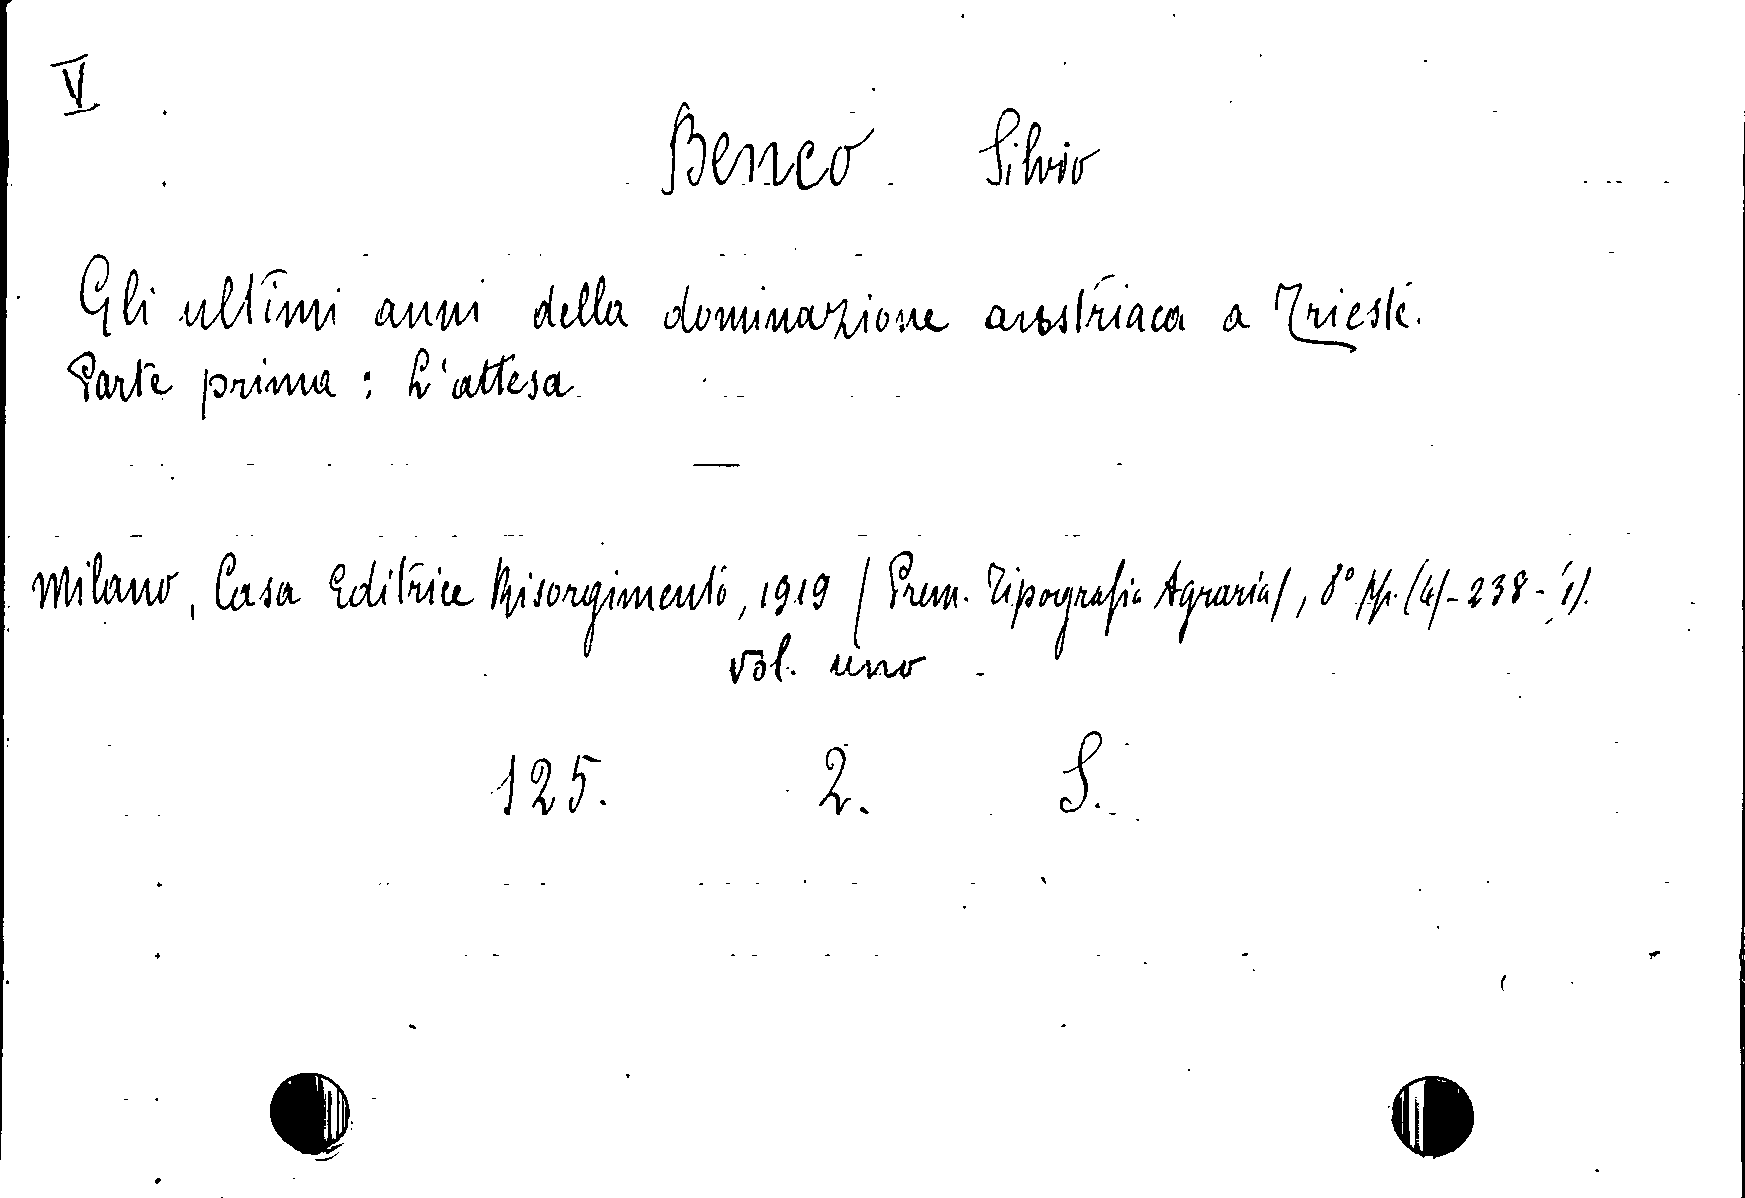 V
Benco Silvio
Gli ultimi anni della dominazione austriaca a Trieste.
Parte prima: L'attesa
Milano, Casa Editrice Risorgimento, 1919 (Prem. Tipografia Agraria), 8° pp. (4)-238-(1).
vol. uno
125. 2. S.